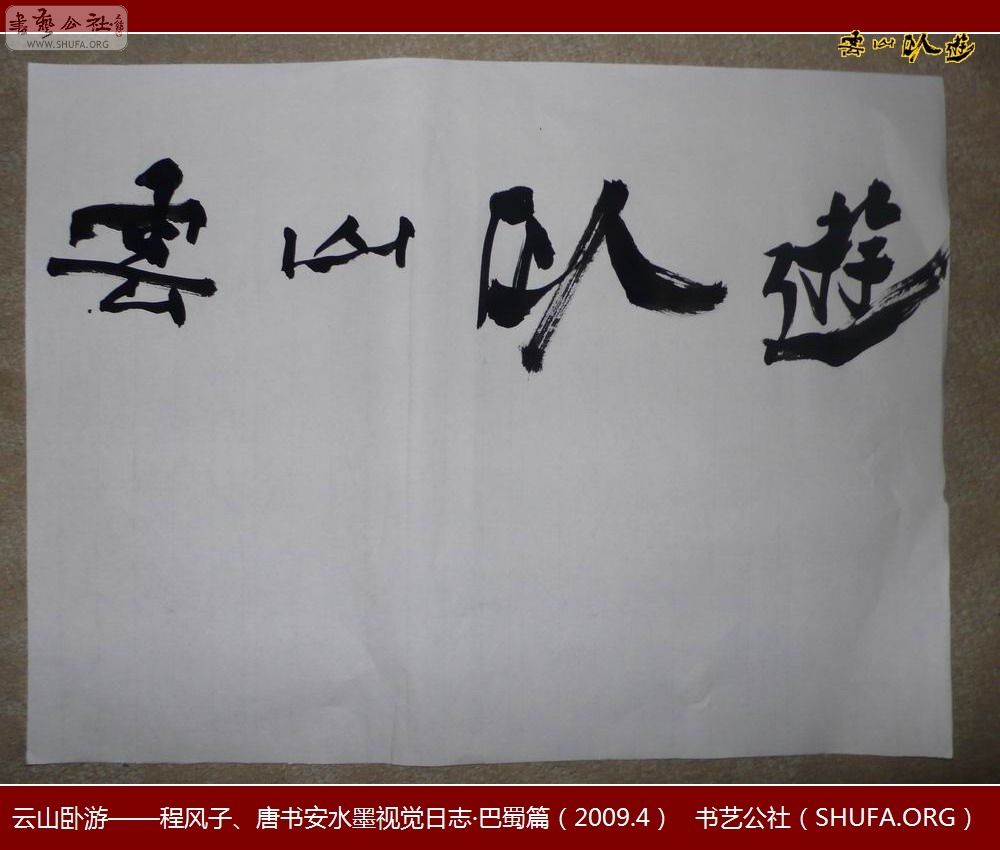 書藝公社
WWW.SHUFA.ORG
雲山卧遊
雲山卧遊
云山卧游——程风子、唐书安水墨视觉日志·巴蜀篇（2009.4） 书艺公社（SHUFA.ORG）